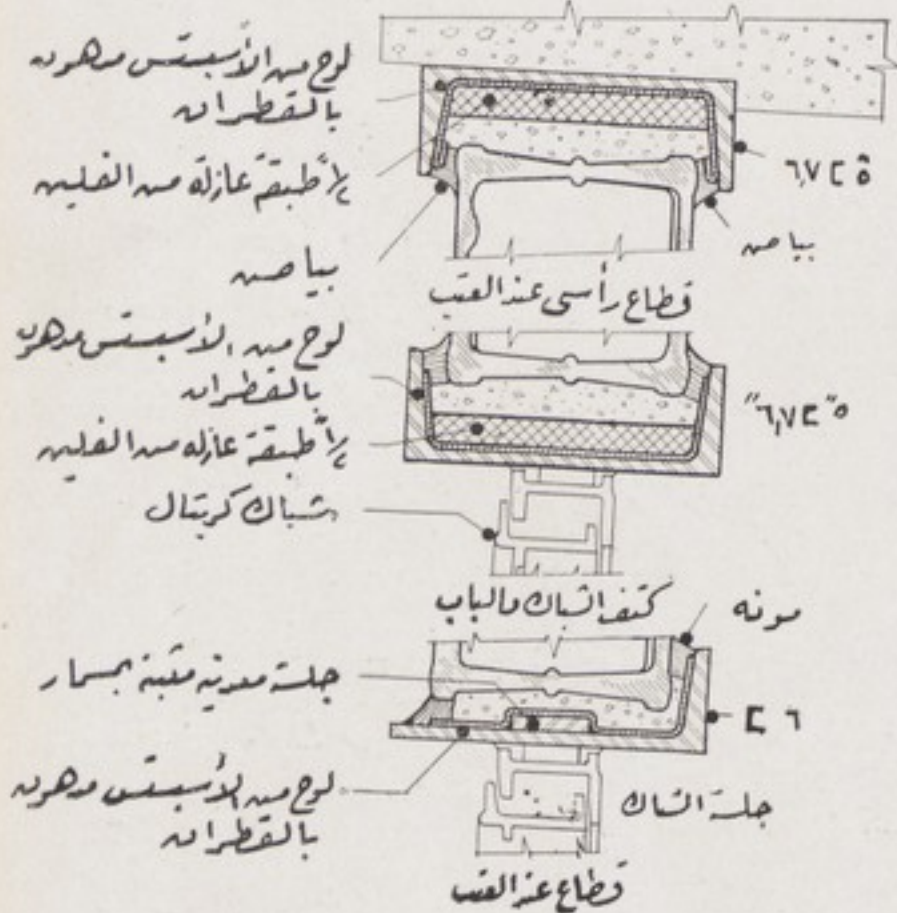 لوح من الأسبستس مدهون
بالقطران
١/٢" طبقة عازلة من الفلين
بياض
٦,٧ ⊏ ٥"
بياض
قطاع رأسى عند العتب
لوح من الأسبستس مدهون
بالقطران
١/٢" طبقة عازلة من الفلين
شباك كريتال
٥" ⊏ ٦,٧"
كتف الشباك والباب
مونه
جلسة معدنية مثبتة بمسمار
⊏ ٦
لوح من الأسبستس مدهون
بالقطران
جلسة الشباك
قطاع عند العتب